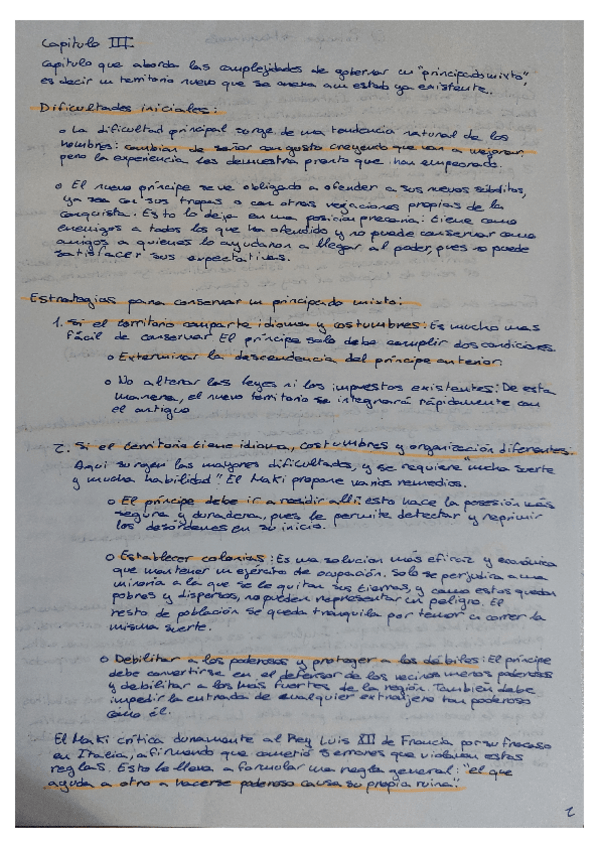 Capitulo III:
capitulo que aborda las complejidades de gobernar un "principado mixto",
es decir un territorio nuevo que se anexa a un estado ya existente.
Dificultades iniciales:
o La dificultad principal surge de una tendencia natural de los
hombres: cambian de señor con gusto creyendo que van a mejorar,
pero la experiencia les demuestra pronto que han empeorado.
o El nuevo príncipe se ve obligado a ofender a sus nuevos súbditos,
ya sea con sus tropas o con otras vejaciones propias de la
conquista. Esto lo deja en una posición precaria: tiene como
enemigos a todos los que ha ofendido y no puede conservar como
amigos a quienes lo ayudaron a llegar al poder, pues no puede
satisfacer sus expectativas.
Estrategias para conservar un principado mixto:
1. Si el territorio comparte idioma y costumbres: Es mucho mas
fácil de conservar El príncipe solo debe cumplir dos condiciones.
o Exterminar la descendencia del príncipe anterior.
o No alterar las leyes ni los impuestos existentes: De esta
manera, el nuevo territorio se integrará rápidamente con
el antiguo
2. Si el territorio tiene idioma, costumbres y organización diferentes:
Aqui surgen las mayores dificultades, y se requiere "mucha suerte
y mucha habilidad" El Maki propone varios remedios.
o El príncipe debe ir a residir allí: esto hace la posesión más
segura y duradera, pues le permite detectar y reprimir
los desórdenes en su inicio.
o Establecer colonias: Es una solucion más eficaz y económica
que mantener un ejército de ocupación. Solo se perjudica a una
minoria a la que se le quitan sus tierras, y como estos quedan
pobres y dispersos, no pueden representar un peligro. El
resto de población se queda tranquila por temor a correr la
misma suerte.
o Debilitar a los poderosos y proteger a los débiles: El príncipe
debe convertirse en el defensor de los vecinos menos poderosos
y debilitar a los más fuertes de la región. También debe
impedir la entrada de cualquier extranjero tan poderoso
como él.
El Maki critica duramente al Rey Luis XII de Francia por su fracaso
en Italia, afirmando que cometió 5 errores que violaban estas
reglas. Esto le lleva a formular una regla general: "el que
ayuda a otro a hacerse poderoso causa su propia ruina".
2